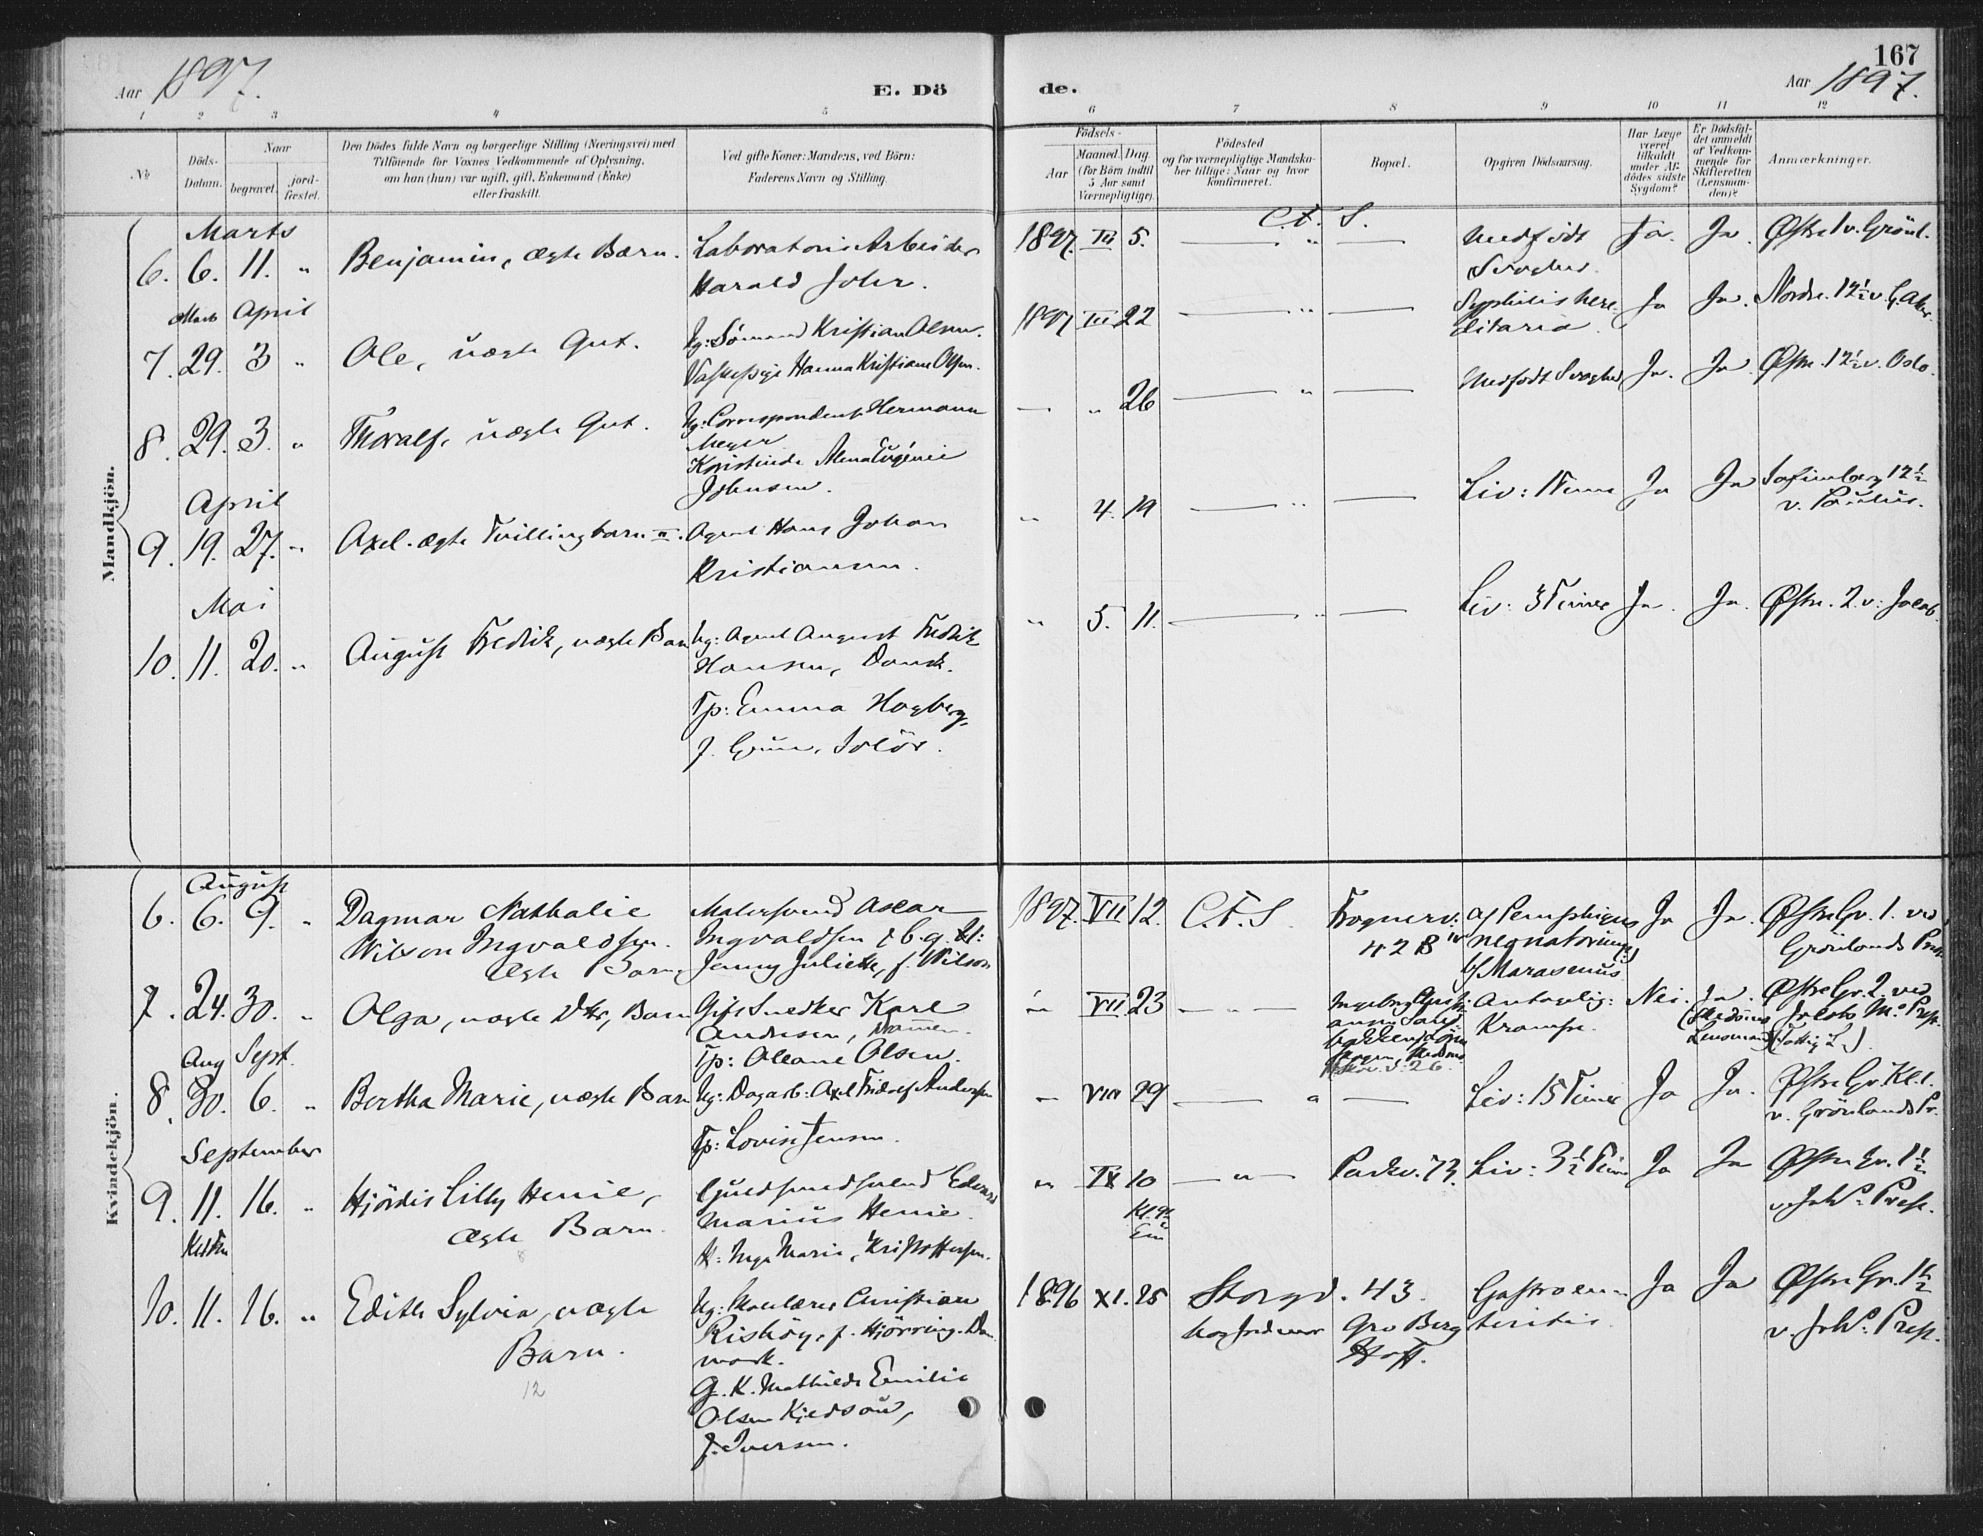 167
Aar 1897.
E. Dö
de.
Aar 1897.
1 2 3 4 5 6 7 8 9 10 11 12
№
Döds-
Datum.
Naar
begravet.
jord-
fæstet.
Den Dödes fulde Navn og borgerlige Stilling (Næringsvei) med
Tilföiende for Voxnes Vedkommende af Oplysning,
om han (hun) var ugift, gift, Enkemand (Enke)
eller fraskilt.
Ved gifte Koner: Mandens, ved Börn:
Faderens Navn og Stilling.
Födsels-
Aar
Maaned. Dag.
(for Börn indtil
5 Aar samt
Værnepligtige).
Födested
og for værnepligtige Mandska-
ber tillige: Naar og hvor
konfirmeret.
Bopæl.
Opgiven Dödsaarsag.
Har Læge
været
tilkaldt
under Af-
dödes sidste
Sygdom?
Er Dödsfal-
det anmeldt
af Vedkom-
mende for
Skifteretten
(Lensman-
den)?
Anmærkninger.
Mandkjön.
Marts
6. 6. 11. " Benjamin, ægte Barn. Laboratorie Arbeider
Harald Johr.
1897. III 5. C. F. S. Medfödt
Svaghed. Ja. Ja. Østre 1 v. Grönl.
Marts April
7. 29. 3 " Ole, uægte Gut. Ug: Sömand Kristian Olsen.
Hanna Kristiane Olsen.
1897 III 22 " Syphilis here
ditaria. Ja Ja. Nordre. 12½ v.
8. 29. 3. " Thoralf, uægte Gut. Ug: Correspondent Hermann
Meyer
Alma Eugénie
Johnsen.
" 26 " Medfödt Svaghed Ja. Ja. Østre. 12½ v. Oslo.
April
9. 19. 27. " Axel. ægte Tvillingbarn II. Agent Hans Johan
Kristiansen.
" 4. 19 " Liv: 1 Time Ja Ja Sofienberg 12½
v. Paulus.
Mai
10. 11. 20. " August Fredrik, uægte Barn Ug: Agent August Fredrik
Hansen, Dansk.
Tp: Emma Hogberg,
f. Grue, Solör.
" 5. 11. " Liv: 3 Timer Ja. Ja. Østre. 2. v. Jacob.
Kvindekjön.
August
6. 6. 9. " Dagmar Nathalie
Wilson Ingvaldsen.
ægte Barn
Malersvend Oscar
Ingvaldsen
Jenny Juliette, f. Wilson
1897. VII 12. C. F. S. Frognerv:
42 B IV
a/ Pemphigus
neonatorum
b/ Marasmus
Ja Ja. Østre Gr. 1. ved
Grönlands Præst
7. 24. 30. " Olga, uægte Dtr, Barn Gift Snedker Karl
Andresen, Drammen.
Tp: Oleane Olsen.
" VII 23 " Antagelig:
Krampe. Nei. Ja. Østre Gr. 2 ved
Jacobs Mgs. Præst.
Lensmand) (Fattig L.)
Aug Sept.
8. 30. 6. " Bertha Marie, uægte Barn Ug: Dagarb: Axel Fridolf Andersen
Tp: Lovise Jensen.
" VIII 29 " Liv: 15 Timer Ja Ja. Østre Gr. Kl. 1.
v. Grönlands Pr.
September
9. 11. 16. " Hjördis Lilly Henie,
ægte Barn.
Guldsmedsvend Edvard
Marius Henie.
H: Inga Marie, Kristoffersen.
" IX 10 " Parkv. 73. Liv: 3½ Time Ja Ja Østre Gr. 1½
v. Johs. Præst.
10. 11. 16. " Edith Sylvia, uægte
Barn.
12
Christian
Rishöy, f. Hjörring. Dan
mark.
G. K. Mathilde Emilie
Olsen
f. Iversen.
1896 XI. 25 Storgd. 43.
Gro Berg
Hoff.
Gastroen-
teritis. Ja Ja Østre Gr. 1½
v. Johs. Præst.